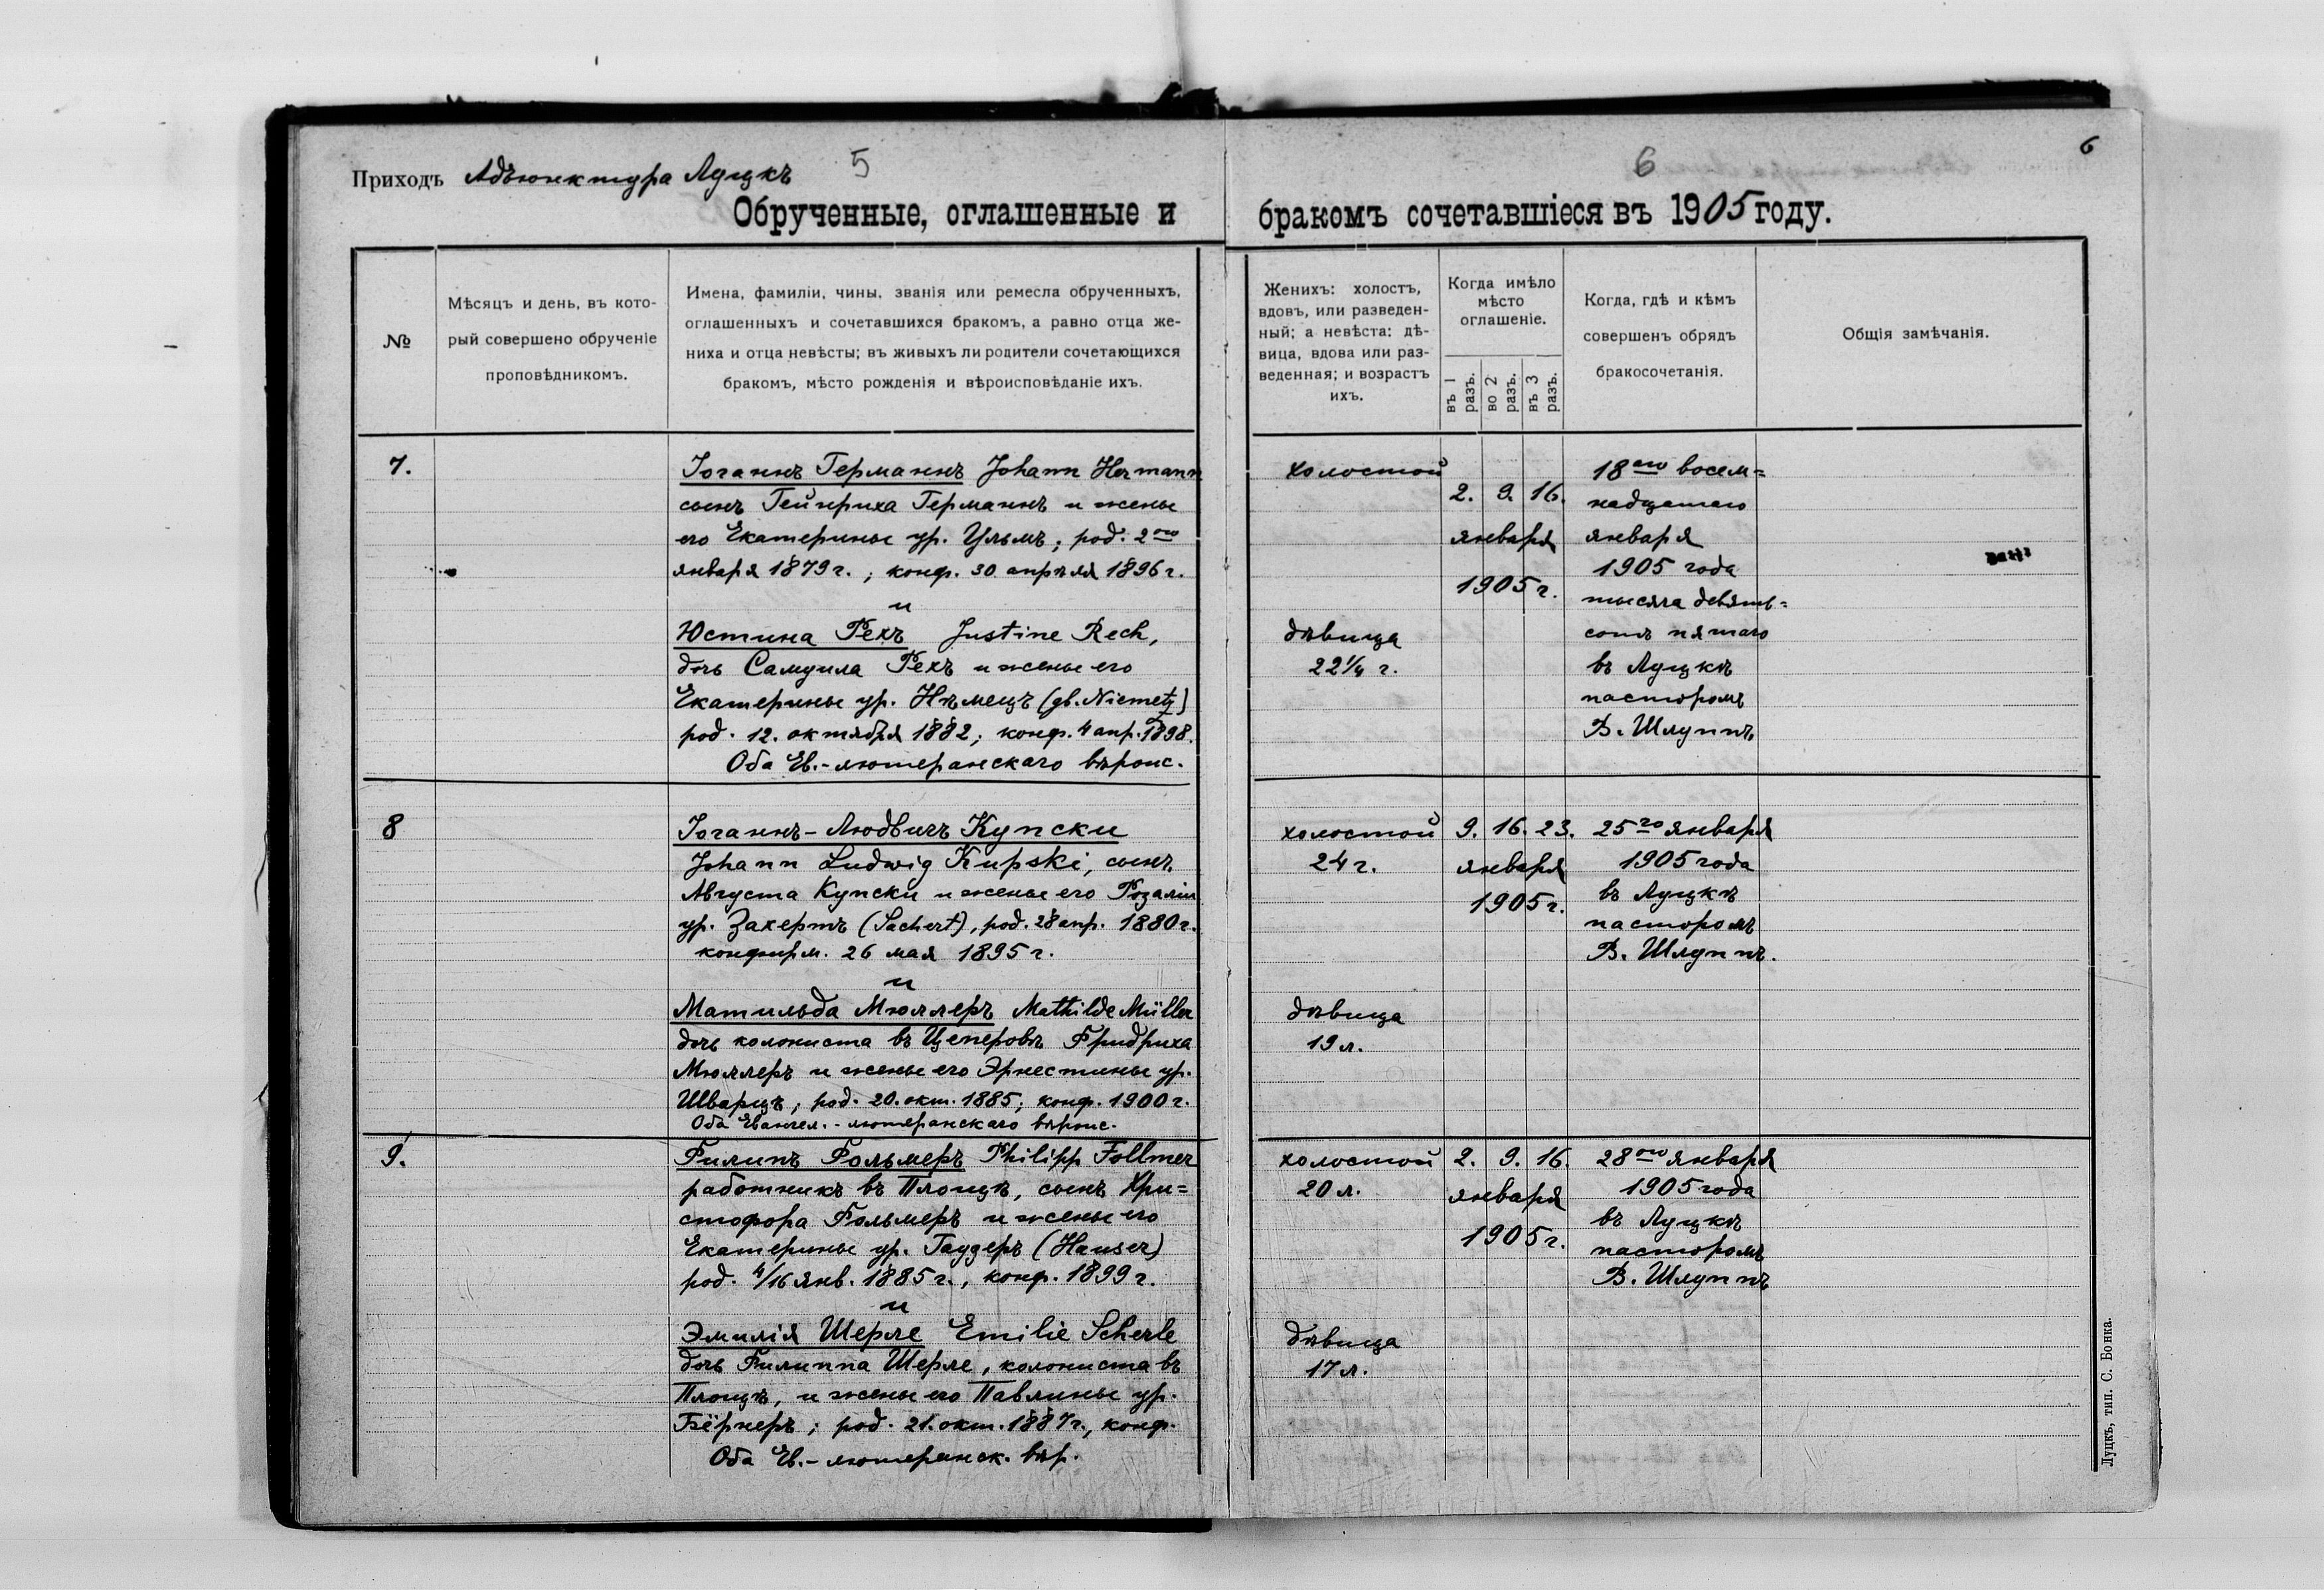 Приходъ Адъюнктура Луцкъ 5
Обрученные, оглашенные и
№
Мѣсяцъ и день, въ кото-
рый совершено обрученіе
проповѣдникомъ.
Имена, фамиліи, чины, званія или ремесла обрученныхъ,
оглашенныхъ и сочетавшихся бракомъ, а равно отца же-
ниха и отца невѣсты; въ живыхъ ли родители сочетающихся
бракомъ, мѣсто рожденія и вѣроисповѣданіе ихъ.
7.
Іоганнъ Германнъ Johann Hermann
сынъ Гейнриха Германнъ и жены
его Екатерины ур. Ульмъ; род. 2ого
января 1879 г.; конф. 30 апрѣля 1896 г.
и
Юстина Рехъ Justine Rech,
дочь Самуила Рехъ и жены его
Екатерины ур. Нѣмецъ (gb. Niemetz)
род. 12. октября 1882; конф. 4 апр. 1898.
Оба Ев.-лютеранскаго вѣроис.
8
Іоганнъ-Людвигъ Купски
Johann Ludwig Kupski, сынъ
Августа Купски и жены его Розаліи
ур. Захертъ (Sachert), род. 28 апр. 1880 г.
конфирм. 26 мая 1895 г.
и
Матильда Мюллеръ Mathilde Müller
дочь колониста въ Цеперовѣ Фридриха
Мюллеръ и жены его Эрнестины ур.
Шварцъ; род. 20. окт. 1885; конф. 1900 г.
Оба Евангел.-лютеранскаго вѣроис.
9.
Филипъ Фольмеръ Philipp Follmer
работникъ въ Площѣ, сынъ Хри=
стофора Фольмеръ и жены его
Екатерины ур. Гаузеръ (Hauser)
род. 4/16 янв. 1885 г., конф. 1899 г.
и
Эмилія Шерле Emilie Scherle
дочь Филиппа Шерле, колониста въ
Площѣ, и жены его Павлины ур.
Бёрнеръ; род. 21. окт. 1887 г., конф.
Оба Ев.-лютеранск. вѣр.
6
6
бракомъ сочетавшіеся въ 1905 году.
Женихъ: холостъ,
вдовъ, или разведен-
ный; а невѣста: дѣ-
вица, вдова или раз-
веденная; и возрастъ
ихъ.
Когда имѣло
мѣсто
оглашеніе.
въ 1
разъ.
во 2
разъ.
въ 3
разъ.
Когда, гдѣ и кѣмъ
совершенъ обрядъ
бракосочетанія.
Общія замѣчанія.
холостой
2. 9. 16.
января
1905 г.
18ого восем=
надцатаго
января
1905 года
тысяча девять=
сотъ пятаго
въ Луцкѣ
пасторомъ
В. Шлуппъ
дѣвица
22¼ г.
холостой
24 г.
9. 16. 23.
января
1905 г.
25го января
1905 года
въ Луцкѣ
пасторомъ
В. Шлуппъ.
дѣвица
19 л.
холостой
20 л.
2. 9. 16.
января
1905 г.
28ого января
1905 года
въ Луцкѣ
пасторомъ
В. Шлуппъ
дѣвица
17 л.
Луцкъ, тип. С. Бонка.